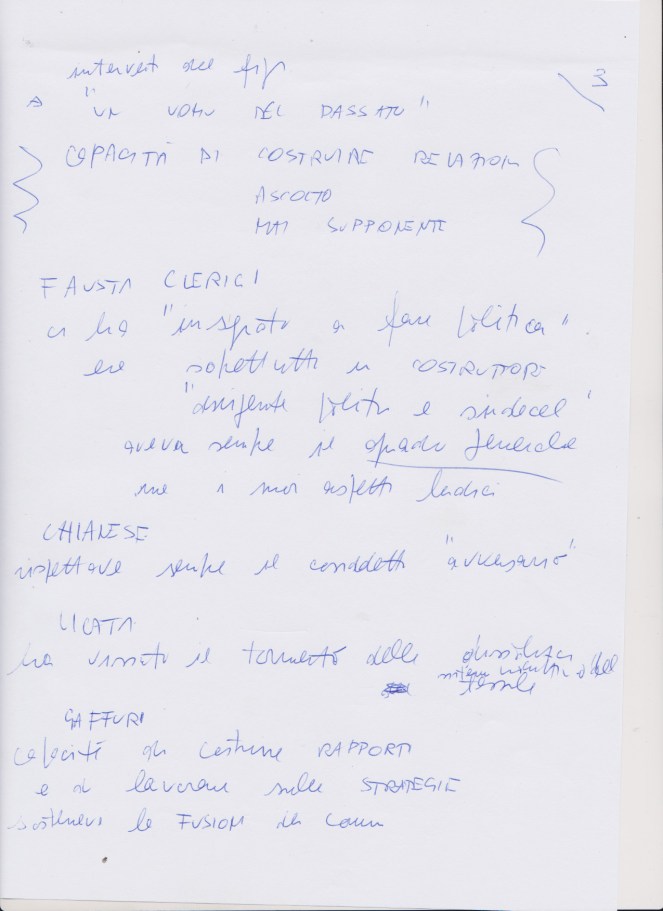 3
interventi del figlio
"UN UOMO DEL PASSATO"
CAPACITÀ DI COSTRUIRE RELAZIONI
ASCOLTO
MAI SUPPONENTE
FAUSTA CLERICI
ci ha "insegnato a fare politica"
era soprattutto un COSTRUTTORE
"dirigente politico e sindacale"
aveva sempre il quadro generale
ma i suoi aspetti ludici
CHIANESE
rispettava sempre il cosiddetto "avversario"
LICATA
ha vissuto il tormento della
del
tessile
GAFFURI
capacità di costruire RAPPORTI
e di lavorare sulle STRATEGIE
sosteneva la FUSIONE dei comuni